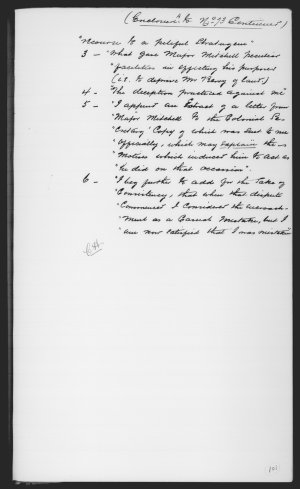 (Enclosure to No. 13 Continued)
"recourse to a pitiful Stratagem"
3 - "What gave Major Mitchell peculiar
"facilities in effecting his purposes
(i.e. to deprove Mr Percy of Court.)
4 - "The deception practised against me"
5 - "I append an Extract of a letter from
"Major Mitchell to the Colonial Sec
"retary Copy of which was sent to me
"officially, which may explain the
"motives which induced him to act as
"he did on that occasion".
6 - "I beg further to add for the sake of
"Consistency, that when that dispute
"Commenced I considered the
"ment as a Casual mistake, but I
"am now satisfied that I was mistaken
101